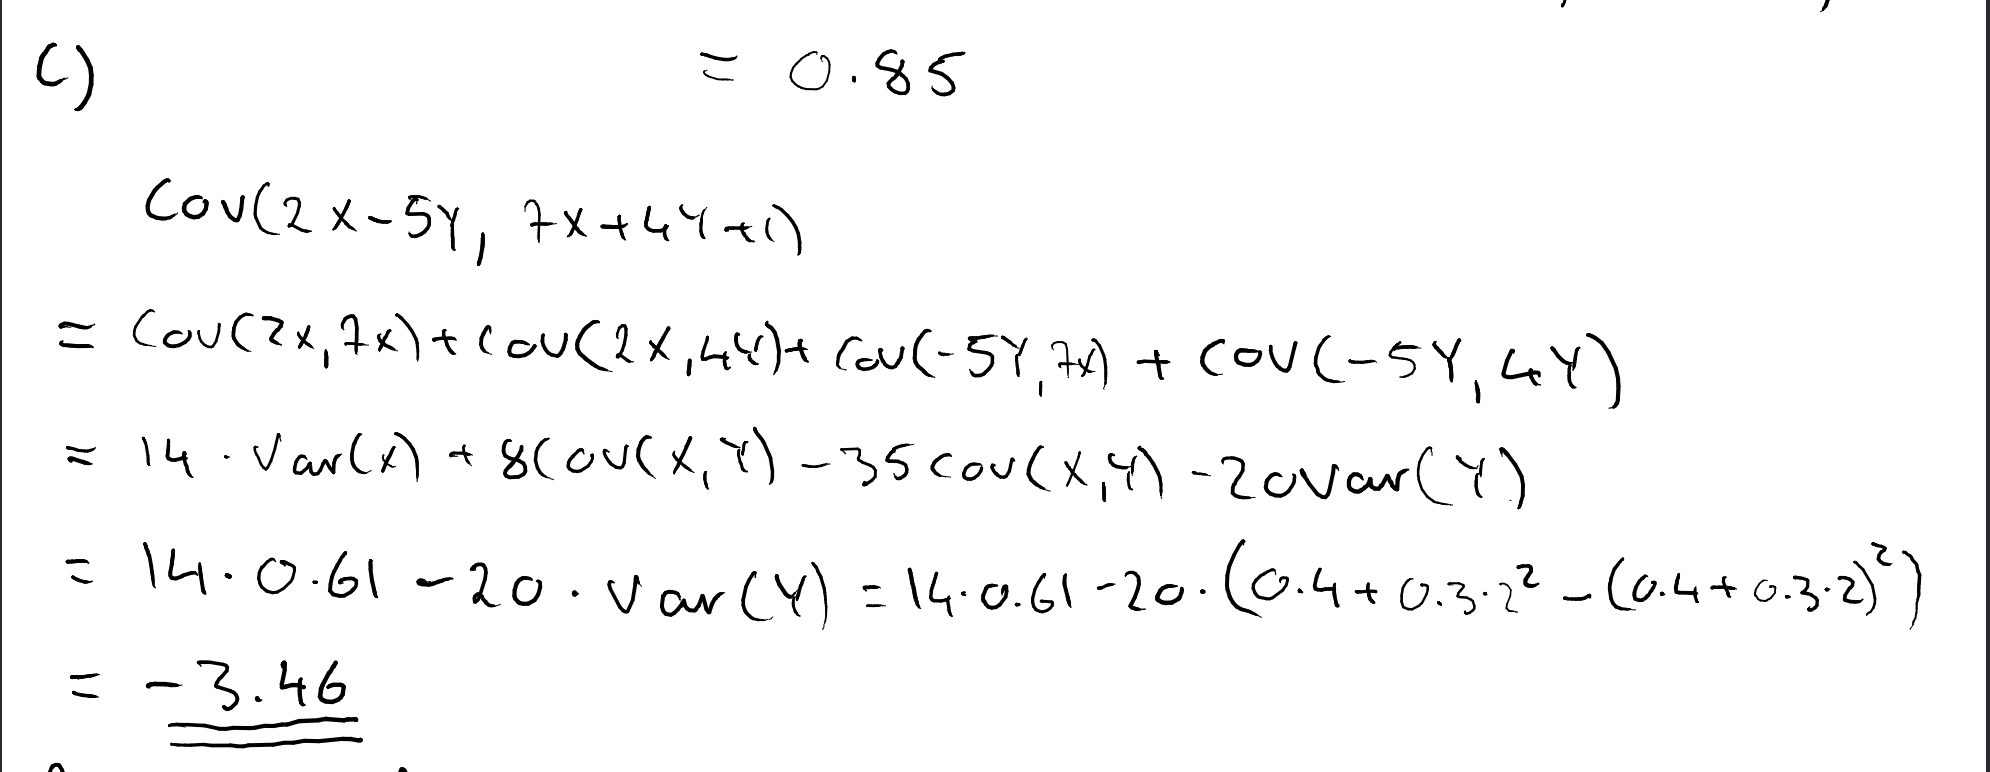 c) = 0.85
Cov(2X-5Y, 7X+4Y+1)
= Cov(2X,7X)+Cov(2X,4Y)+Cov(-5Y,7X) + Cov(-5Y,4Y)
= 14 · Var(X) + 8Cov(X,Y) -35Cov(X,Y) -20Var(Y)
= 14·0.61 -20·Var(Y) = 14·0.61 -20·(0.4+0.3·2² -(0.4+0.3·2)²)
= -3.46